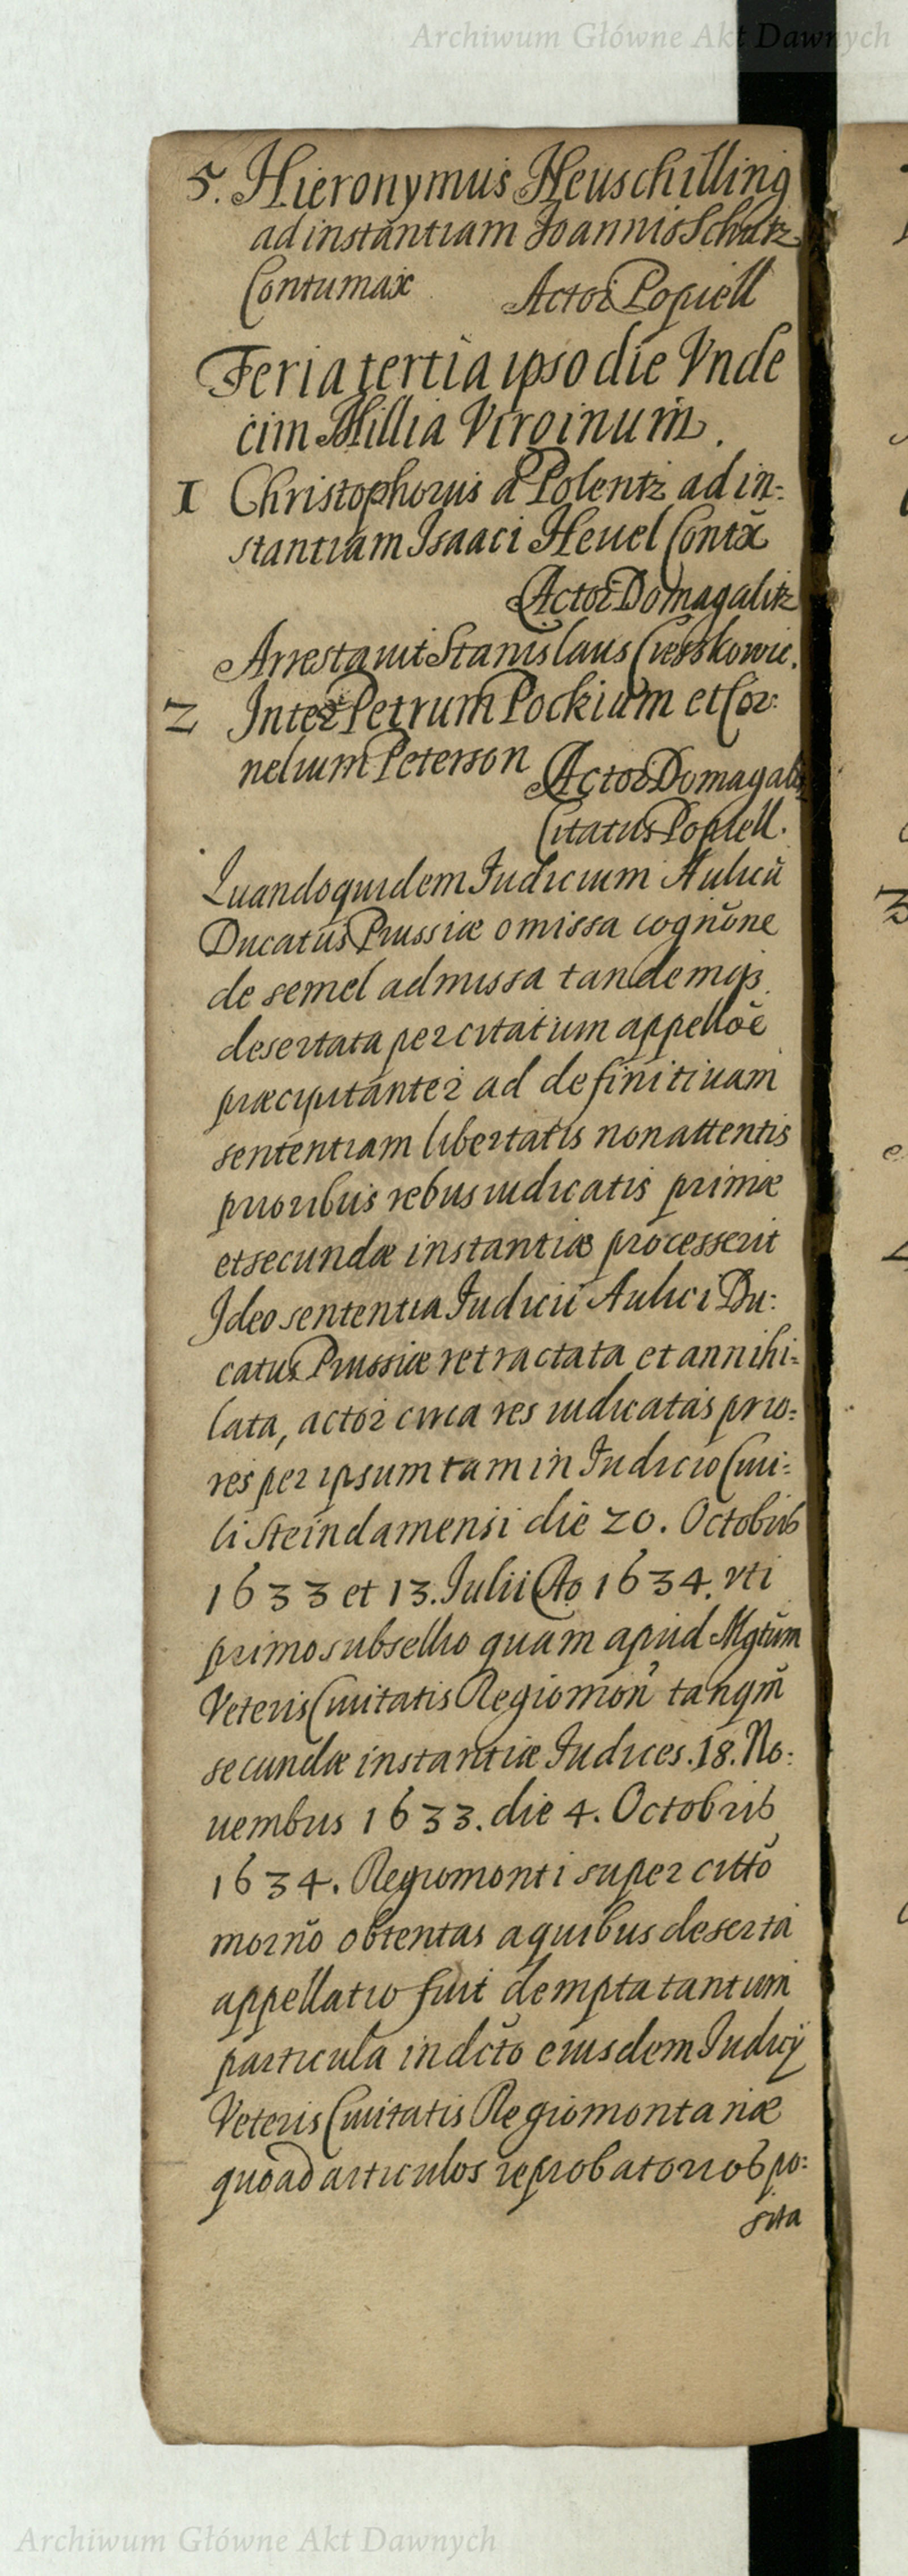 Archiwum Główne Akt Dawnych
5. Hieronymus Heuschilling
ad instantiam Joannis Schutz
Contumax Actor Popiell
Feria tertia ipso die Vnde
cim Millia Virginum.
1 Christophorus a Polentz ad in-
stantiam Isaaci Heuel Contx̃
Actor Domagalitz
Arrestauit Stanislaus Cieszkowic.
2 Inter Petrum Pockium et Cor:
nelium Peterson Actor Domagali
Citatus Popiell.
Quandoquidem Iudicium Aulicũ
Ducatus Prussiæ omissa cognõne
de semel admissa tandemqȝ
desertata per citatum appellõe
præcipitanter ad definitiuam
sententiam libertatis non attentis
prioribus rebus iudicatis primæ
et secundæ instantiæ processerit
Ideo sententia Iudicii Aulici Du:
catus Prussiæ retractata et annihi-
lata, actor circa res iudicatas prio-
res per ipsum tam in Iudicio Ciui-
li Steindamensi die 20. Octobris
1633 et 13. Iulii Ao 1634. vti
primo subsellio quam apud Mgtũm
Veteris Ciuitatis Regiomoñ tanqm̃
secundæ instantiæ Iudices. 18. No:
uembris 1633. die 4. Octobris
1634. Regiomonti super citto
morño obtentas a quibus deserta
appellatio fuit dempta tantum
particula in dc̃to eiusdem Iudicij
Veteris Ciuitatis Regiomontanæ
quoad articulos reprobatorios po:
sita
Archiwum Główne Akt Dawnych